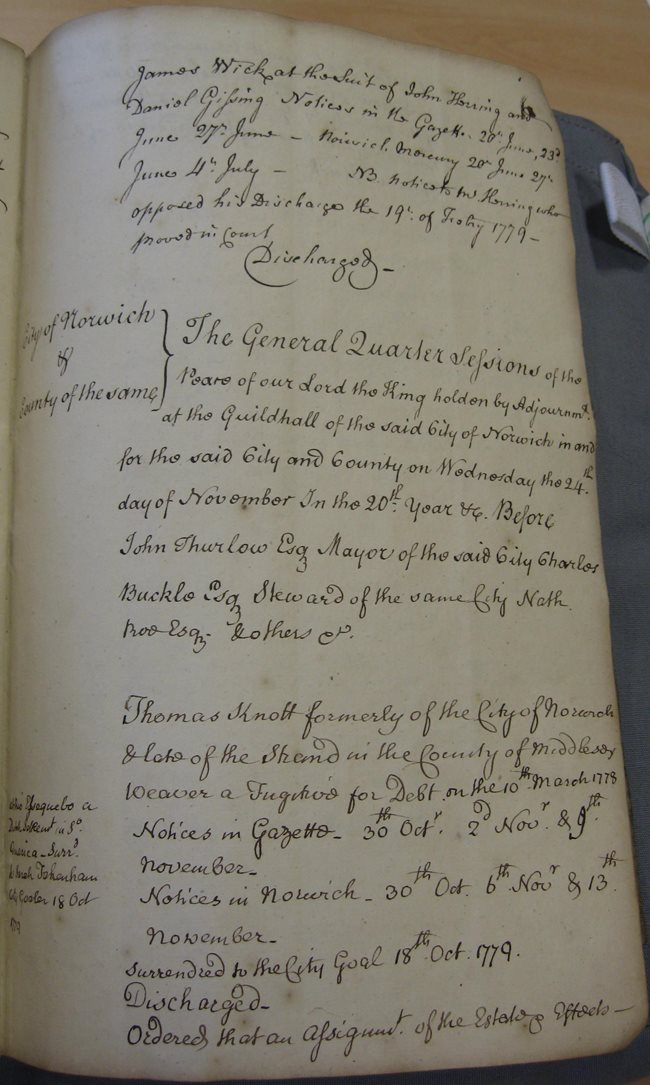 James Wick at the Suit of John Herring and
Daniel Gissing Notices in the Gazette 20th June, 23d
June 27th June – Norwich Mercury 20th June 27th
June 4th July – NB. notice to Mr Herring who
opposed his Discharge the 19th of 1779 –
proved in Court
Discharged –
City of Norwich
&
County of the same
The General Quarter Sessions of the
Peace of our Lord the King holden by Adjournmt.
at the Guildhall of the said City of Norwich in and
for the said City and County on Wednesday the 24th
day of November In the 20th Year &c. Before
John Thurlow Esq Mayor of the said City Charles
Buckle Esq Steward of the same City Nath
Roe Esq. & others &c.
Thomas Knott formerly of the City of Norwich
& late of the Strand in the County of Middlesex
Weaver a Fugitive for Debt on the 10th March 1778
Notices in Gazette – 30th Octr. 2d Novr. & 9th
November –
Notices in Norwich – 30th Oct. 6th Novr & 13th
November –
Surrendred to the City Goal 18th Oct. 1779.
Discharged –
Ordered that an Assignmt. of the Estate & Effects –
Essequebo a
in So.
America – Surrd.
to Tokenham
City Goaler 18 Oct